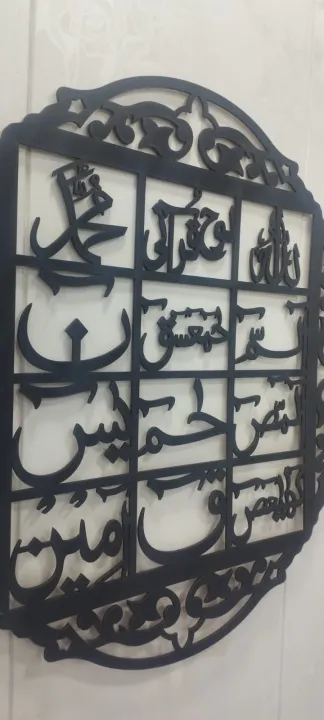 الله لوح قرآنی محمد
الٓمّٓ حمعسق ن
المص حم یٰس
کهیعص ق آمین